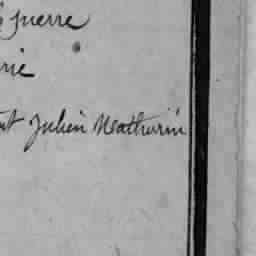 guerre
rie
nt Julien Mathurin